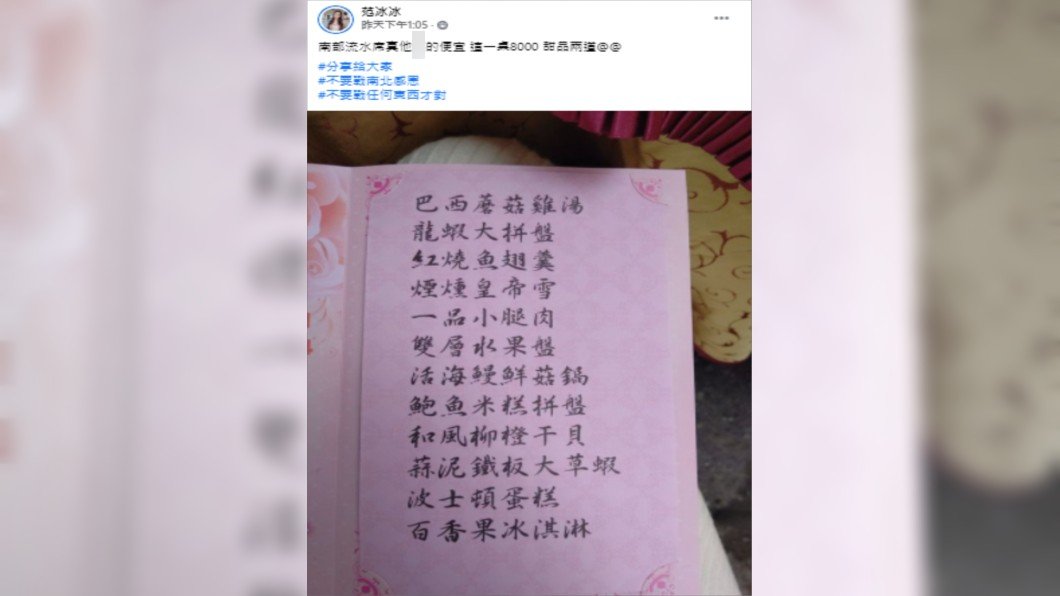 范冰冰
昨天下午1:05
南部流水席真他 的便宜 這一桌8000 甜品兩道@@
#分享給大家
#不要戰南北感恩
#不要戰任何東西才對
巴西蘑菇雞湯
龍蝦大拼盤
紅燒魚翅羹
煙燻皇帝雪
一品小腿肉
雙層水果盤
活海鰻鮮菇鍋
鮑魚米糕拼盤
和風柳橙干貝
蒜泥鐵板大草蝦
波士頓蛋糕
百香果冰淇淋